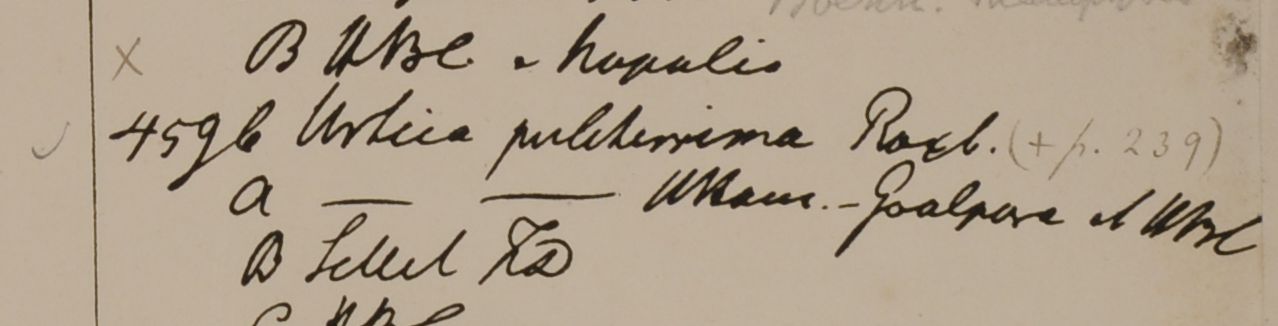 x B HBC. e Napalia
4596 Urtica pulcherrima Roxb. (+ p. 239)
a — — HHam. - Goalpara et HBC
B Sillet FD